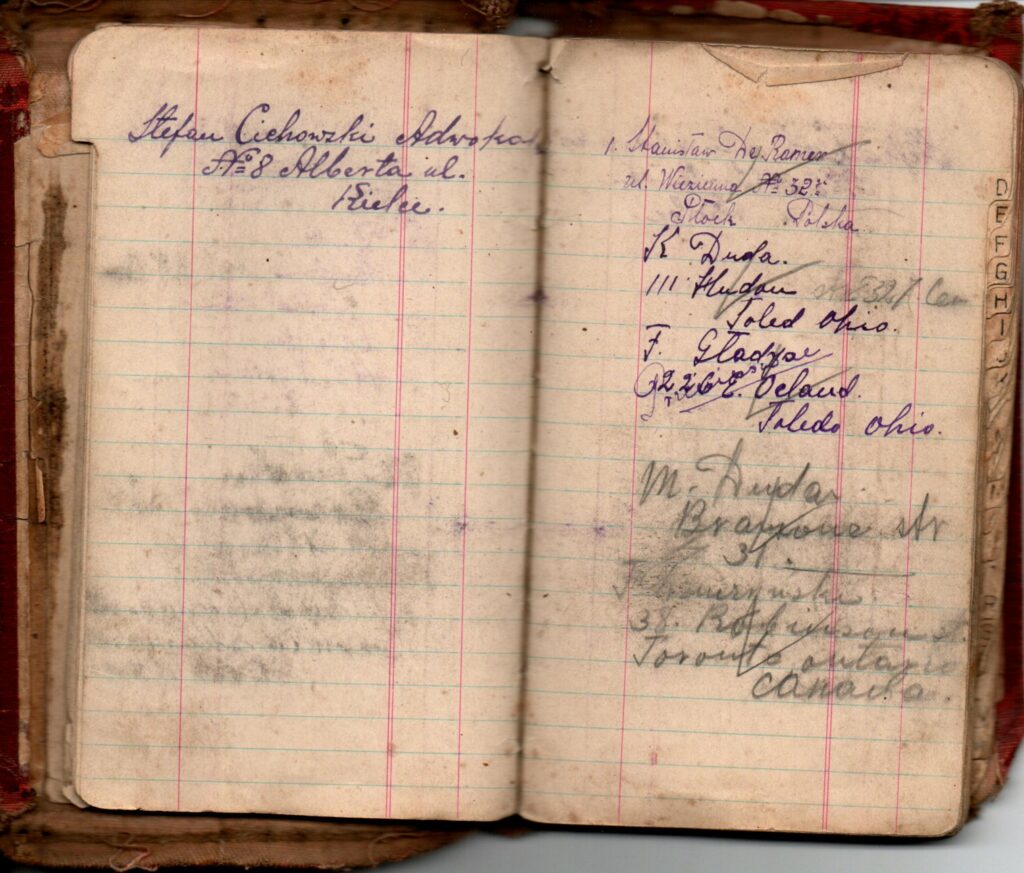 Stefan Cichowski Adwokat
No 8 Alberta ul.
Kielce.
1. Stanisław De Ramer
ul. Wiezienna No 32
Płock Polska
K Duda.
111 Hudon
Toled Ohio.
F. Gładysz
226 E. Oeland.
Toledo Ohio.
M. Duda
31.
38. Robinson st.
Toronto ontario
canada.
D
E
F
G
H
I
J